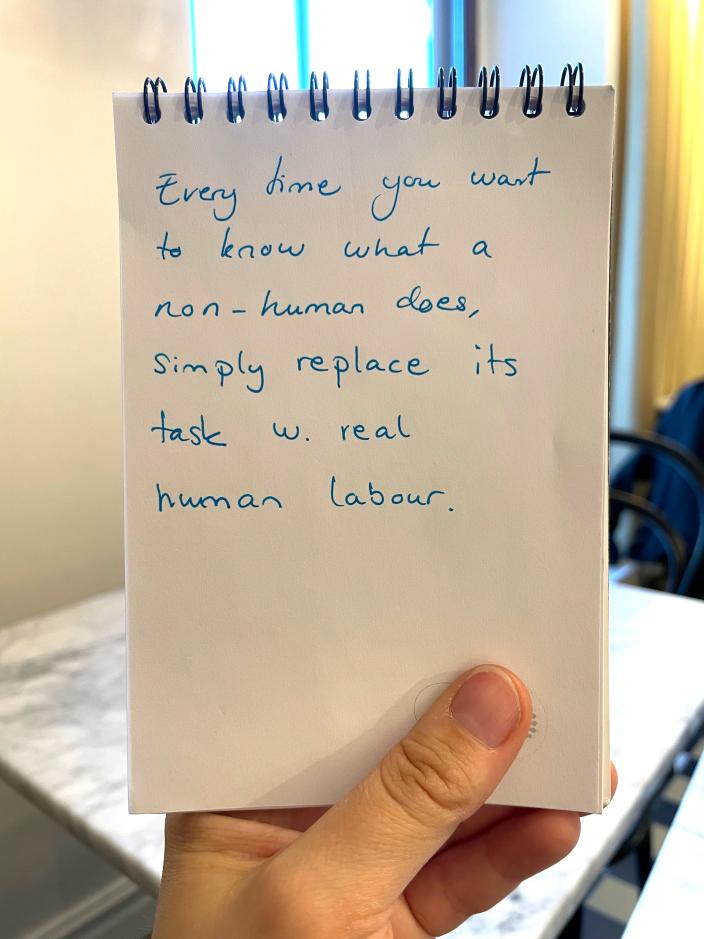 Every time you want
to know what a
non-human does,
simply replace its
task w. real
human labour.